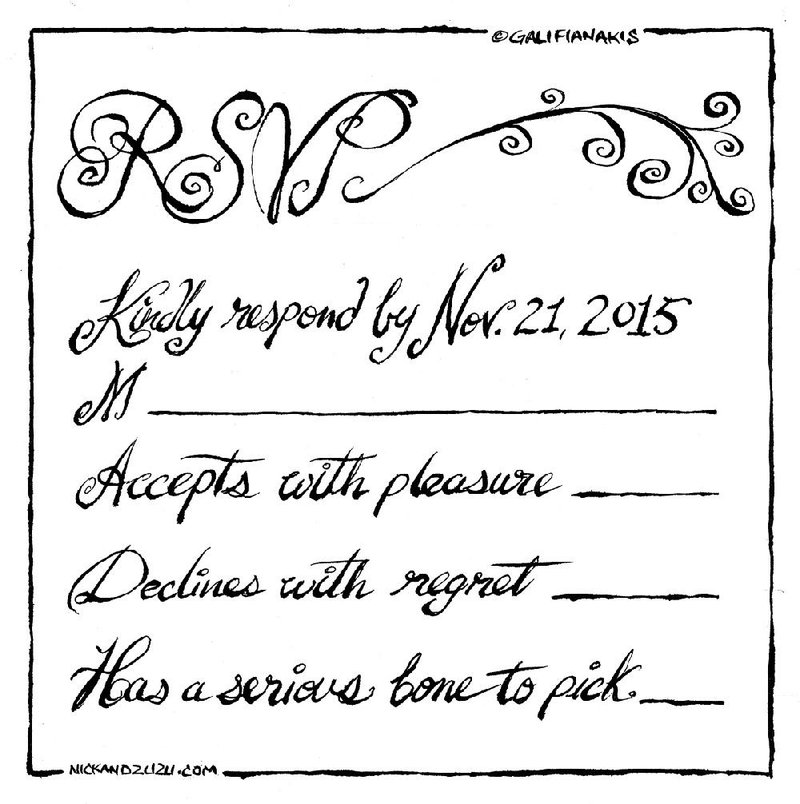 ©GALIFIANAKIS
RSVP
Kindly respond by Nov. 21, 2015
M
Accepts with pleasure
Declines with regret
Has a serious bone to pick
NICKANDZUZU.COM